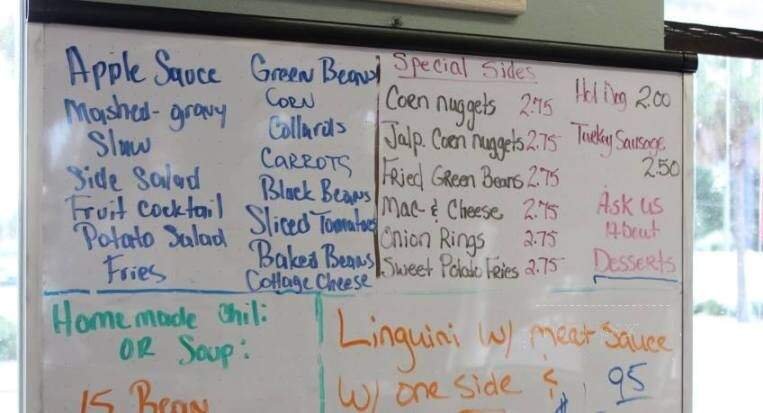 Apple Sauce
Mashed - gravy
Slaw
Side Salad
Fruit Cocktail
Potato Salad
Fries
Green Beans
Corn
Collards
CARROTS
Black Beans
Sliced Tomatoes
Baked Beans
Cottage Cheese
Special Sides
Corn nuggets 2.75
Jalp. Corn nuggets 2.75
Fried Green Beans 2.75
Mac & Cheese 2.75
Onion Rings 2.75
Sweet Potato Fries 2.75
Hot Dog 2.00
Turkey Sausage
2.50
Ask us
About
Desserts
Homemade Chili
OR Soup:
15 Bean
Linguini w/ meat sauce
w/ one side &
95